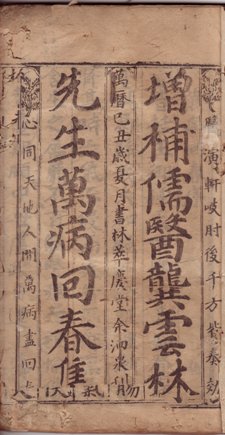 演軒岐肘後千方皆奏効
增補儒醫龔雲林
萬曆己丑歲夏月書林萃慶堂余泗泉刊
先生萬病回春
心同天地人間萬病盡回春